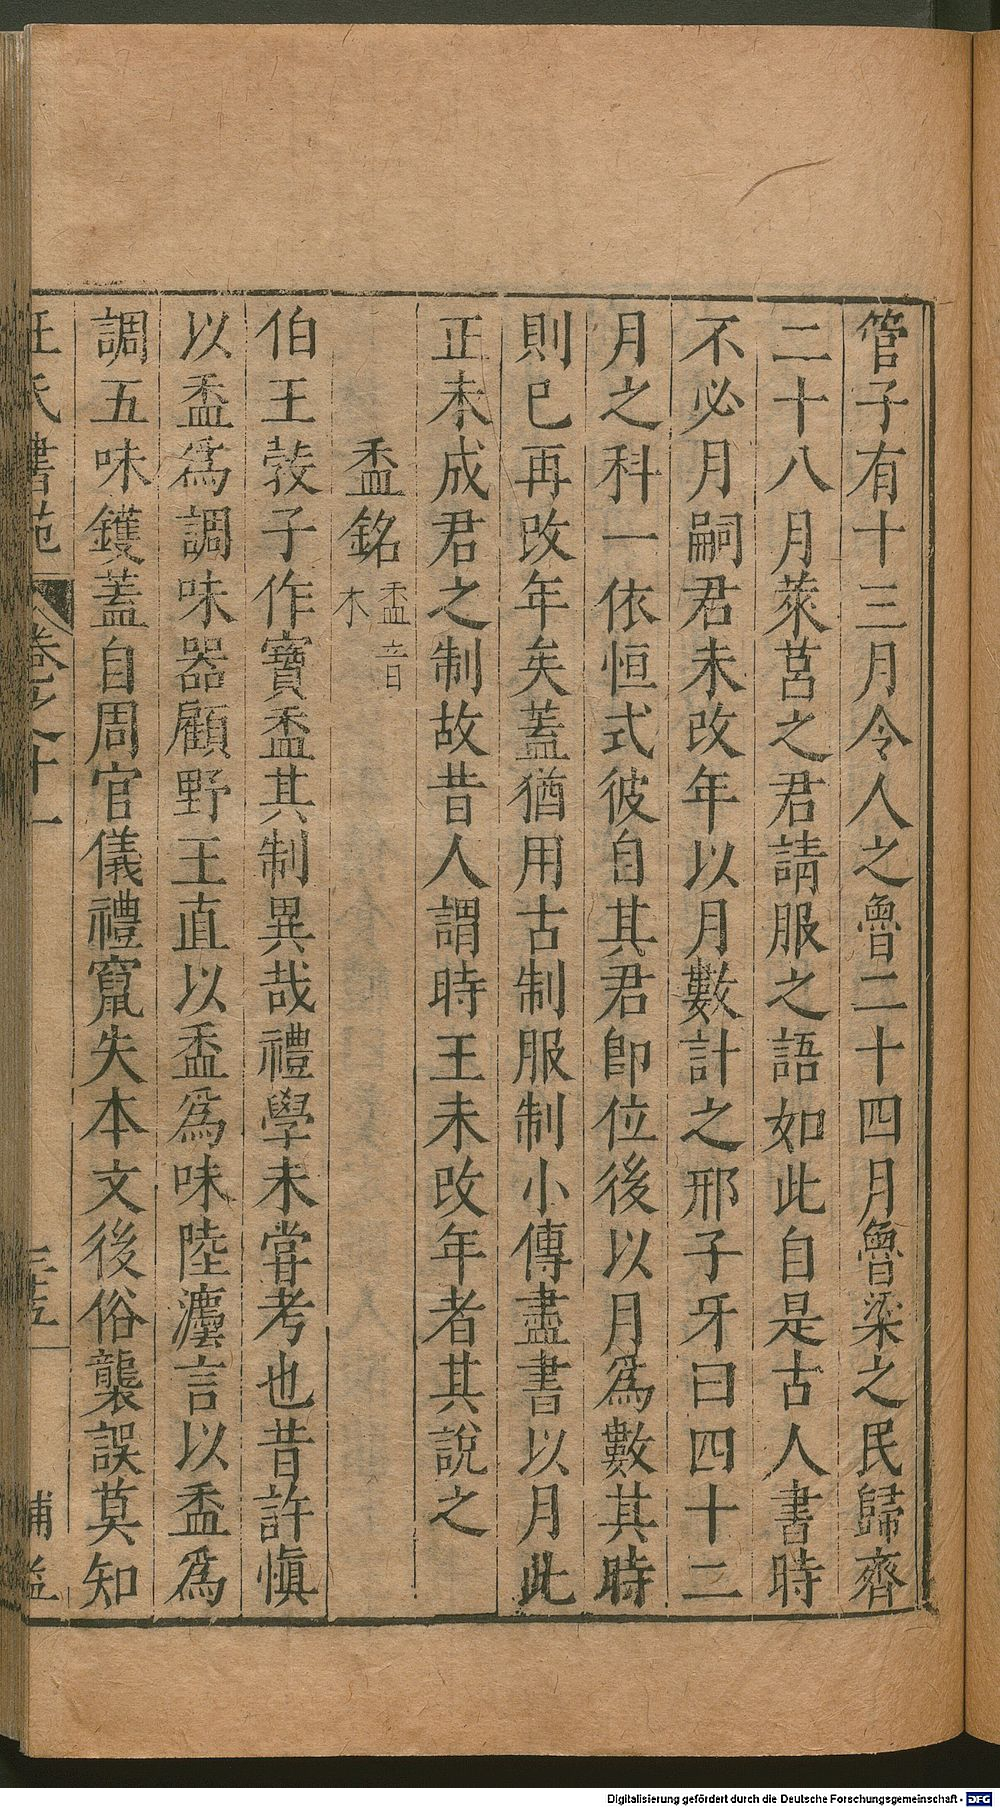 管子有十三月令人之魯二十四月魯梁之民歸齊
二十八月萊莒之君請服之語如此自是古人書時
不必月嗣君未改年以月數計之邢子牙曰四十二
月之科一依恒式彼自其君即位後以月為數其時
則已再改年矣蓋猶用古制服制小傳盡書以月此
正未成君之制故昔人謂時王未改年者其說之
盉銘 盉音
禾
伯王子作寶盉其制異哉禮學未甞考也昔許慎
以盉為調味器顧野王直以盉為味陸言以盉為
調五味鑊蓋自周官儀禮竄失本文後俗襲誤莫知
王氏書苑 卷之十一 補益
Digitalisierung gefördert durch die Deutsche Forschungsgemeinschaft - DFG